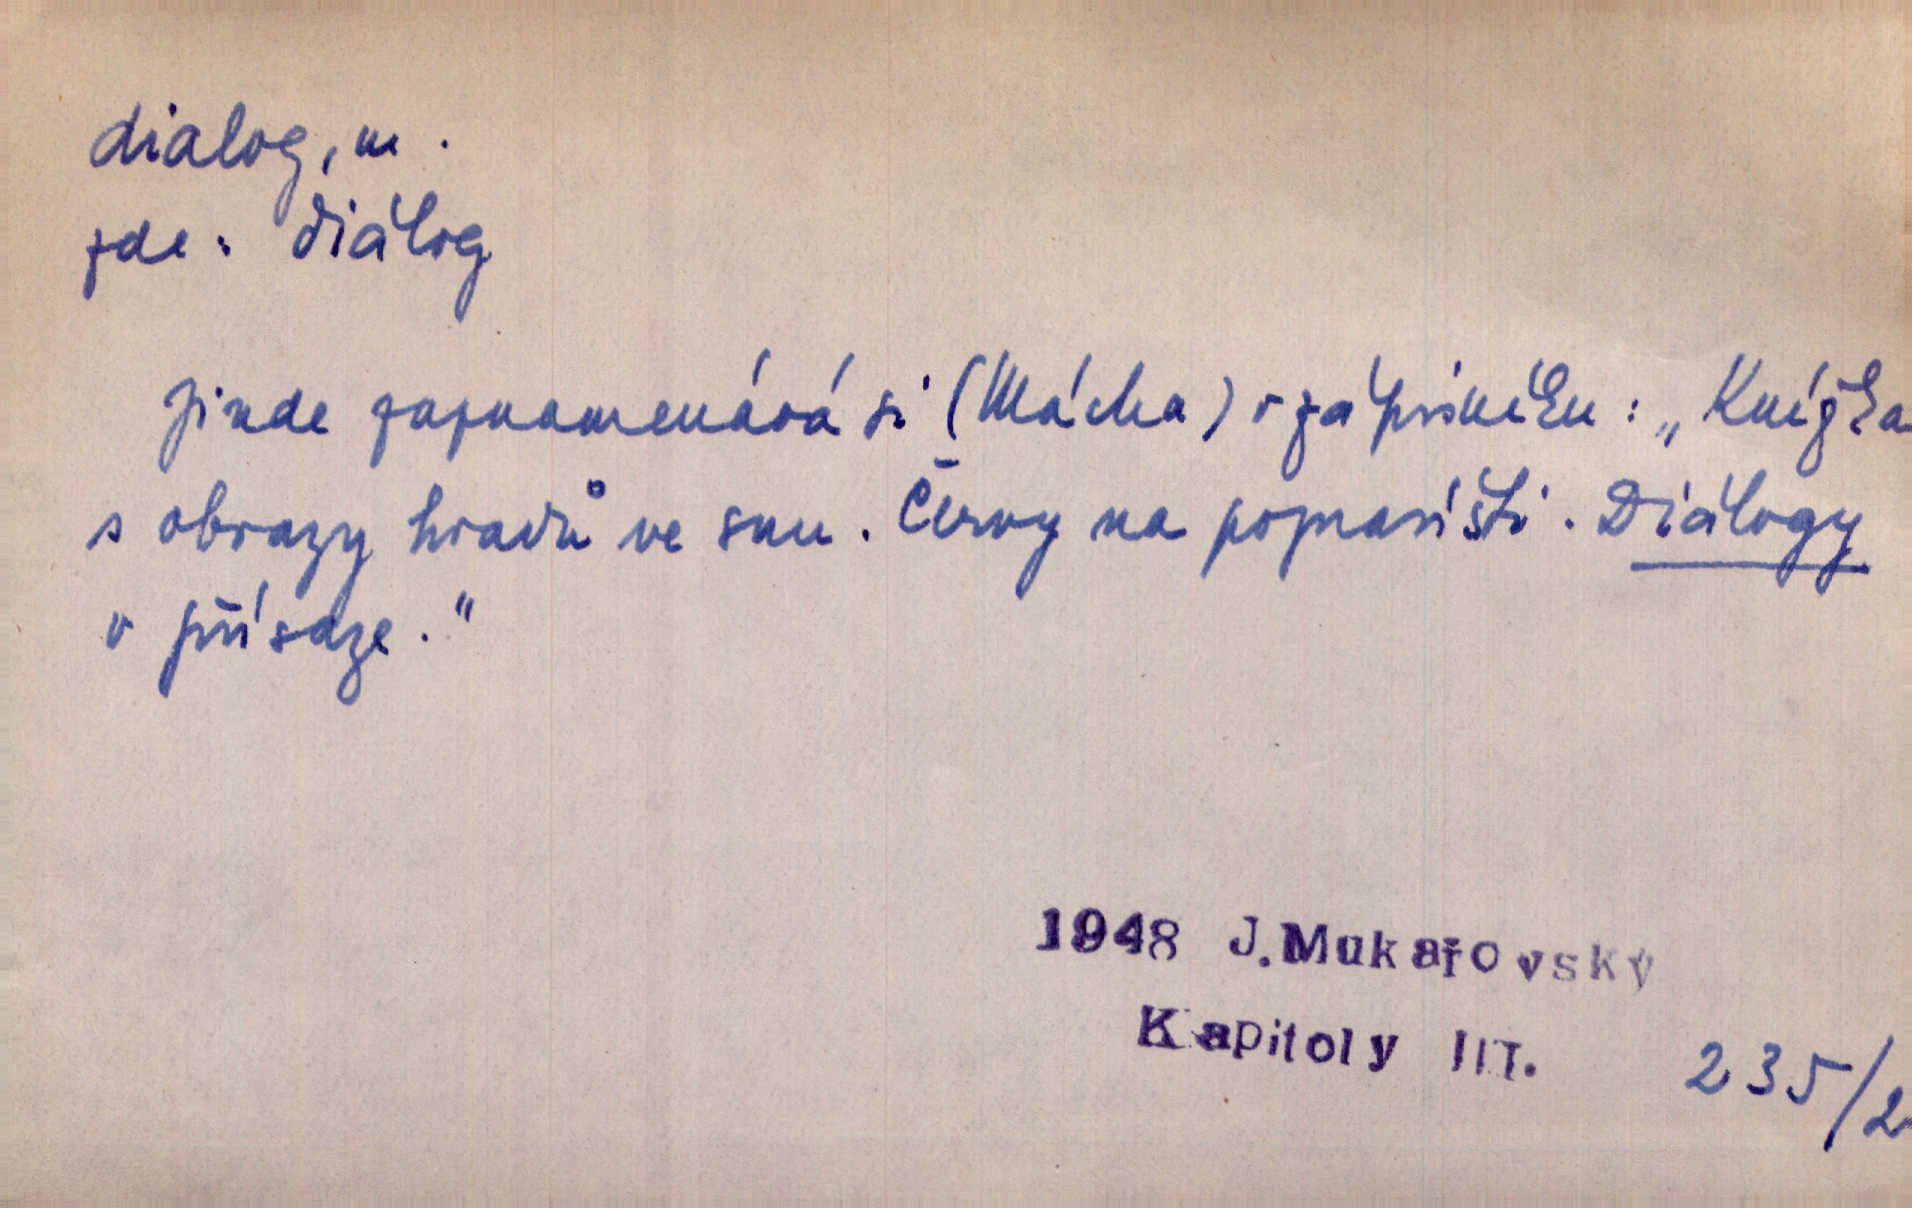 dialog, m.
zde: diálog
Jinde zaznamenává si (Mácha) v zápisníku: „Knížka
s obrazy hradů ve snu. Červy na popravišti. Diálogy
v přísaze."
1948 J.Mukařovský
Kapitoly III.
235/2